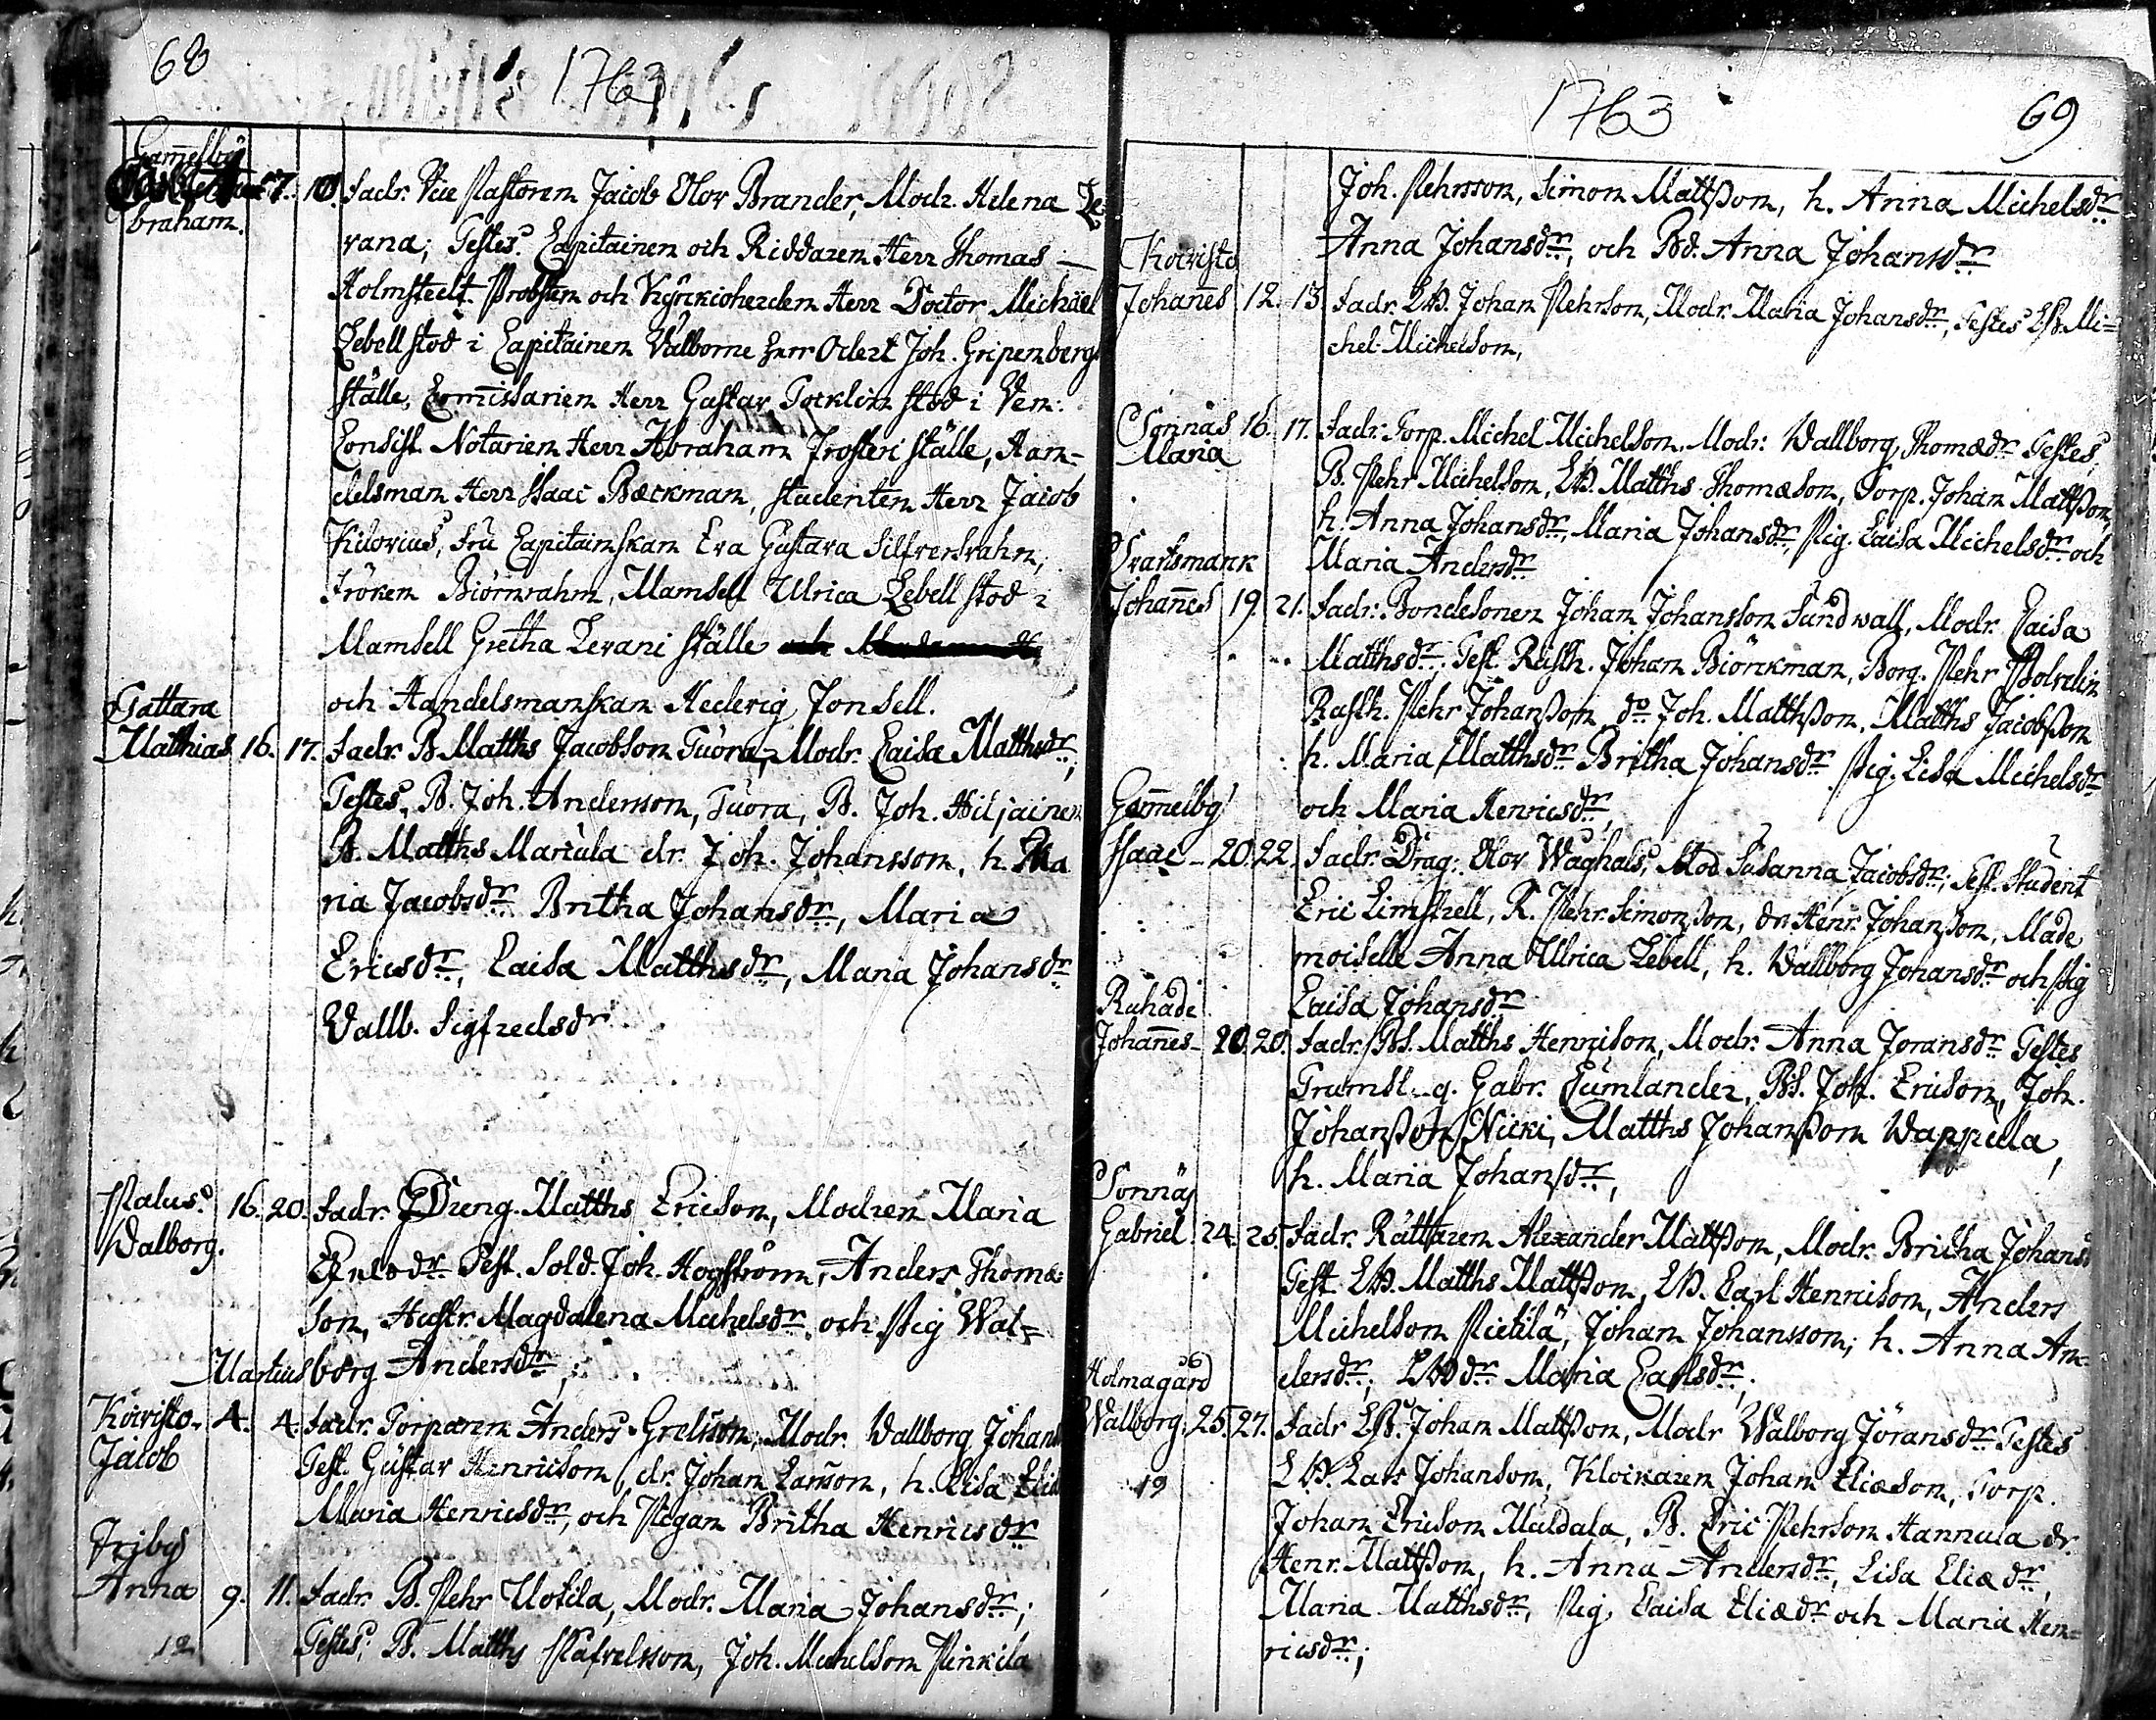 68
1763
Gam̄elby
Abraham. 7. 10. Fadr. Vice Pastoren Jacob Olov Brander, Modr. Helena Le
vana; Testes Capitainen och Riddaren Herr Thomas —
Holmstedt. Probsten och Kyrckioherden Herr Doctor Michäel
Lebell stod i Capitainen Välborne Herr Odert Joh. Gripenbergs
ställe, Com̄issarien Herr Gustav Tocklin stod i Ven:
Consist. Notarien Herr Abraham Frosteri ställe, Han-
delsman Herr Isaac Bæckman, Studenten Herr Jacob
Kilovius, Fru Capitainskan Eva Gustava Silfversvahn,
Fröken Biörnrahm, Mamsell Ulrica Lebell stod i
Mamsell Gretha Levani ställe
och Handelsmanskan Hedevig Fonsell.
Tattara
Matthias 16. 17. Fadr. B Matths Jacobson Tuora, Modr. Caisa Matthsdr;
Testes, B. Joh. Andersson, Tuora, B. Joh. Hiljainen
B. Matths Marcula dr. Joh. Johansson, h. Ma
ria Jacobsdr Britha Johansdr, Maria
Ericsdr, Caisa Matthsdr, Maria Johansdr
Vallb. Sigfredsdr
Palus 16. 20. Fadr. Dreng. Matths Ericson, Modren Maria
Walborg.
Test. Sold. Joh. Hogström, Anders Thomæ
son, Hustr. Magdalena Michelsdr och Pig Wal=
Martius borg Andersdr;
Koivisto. 4. 4. Fadr. Torparen Anders Grelsson, Modr. Vallborg Johans
Jacob Test. Gustav Henricson dr. Johan Larsson, h. Lisa Eliæ
Maria Henricsdr, och Pigan Britha Henricsdr
Friby
Anna 9. 11. Fadr. B. Pehr Uotila, Modr. Maria Johansdr;
12 Testes, B. Matths Stafvelsson, Joh. Michelson Pinkila
1763
69
Joh. Pehrsson, Simon Mattsson, h. Anna Michelsdr
Anna Johansdr, och Bd. Anna Johansdr
Koivisto
Johan̄es 12. 13. Fadr. LB. Johan Pehrson, Modr. Maria Johansdr, Testes LB. Mi=
chel Michelson,
Sonnäs 16. 17. Fadr. Torp. Michel Michelson, Modr: Wallborg Thomædr Testes,
Maria B. Pehr Michelson, LB. Matths Thomæson, Torp. Johan Mattsson,
h. Anna Johansdr, Maria Johansdr, Pig. Caisa Michelsdr och
Svartsmark Maria Andersdr
Johan̄es 19. 21. Fadr: Bondesonen Johan Johansson Sundwall, Modr. Caisa
Matthsdr; Test. Rusth. Johan Biörckman, Borg. Pehr Bolvelin
Rusth. Pehr Johansson, do Joh. Matthsson, Matths Jacobsson
h. Maria Matthsdr Britha Johansdr Pig. Lisa Michelsdr
Gam̄elby och Maria Henricsdr,
Isaac – 20. 22. Fadr. Drag: Olov Waghals, Mod. Susanna Jacobsdr; Test. Student
Eric Limstell, R. Pehr Simonsson, dr Henr. Johansson, Made
moiselle Anna Ulrica Lebell, h. Vallborg Johansdr och Pig
Ruhade Caisa Johansdr
Johan̄es – 20. 20. Fadr. BS. Matths Henricson, Modr. Anna Joransdr Testes
Trumsl. g. Gabr. Cumlander, BS. Joh. Ericson, Joh.
Johansson Nicki, Matths Johansson Wappula,
Sonnäs h. Maria Johansdr,
Gabriel. 24. 25. Fadr. Rättaren Alexander Mattsson, Modr. Britha Johans
Test LB. Matths Mattsson, LB. Carl Henricson, Anders
Michelson Pietilä, Johan Johansson, h. Anna An-
Holmagård dersdr; LBdr Maria Carlsdr;
Walborg. 25. 27. Fadr LB. Johan Mattsson, Modr Walborg Jöransdr Testes
19 LB. Lars Johanson, Klockaren Johan Eliæson, Torp.
Johan Ericson Muldala, B. Eric Pehrson Hannula dr.
Henr. Mattsson, h. Anna Andersdr, Lisa Eliædr,
Maria Matthsdr, Pig. Caisa Eliædr och Maria Hen=
ricsdr;